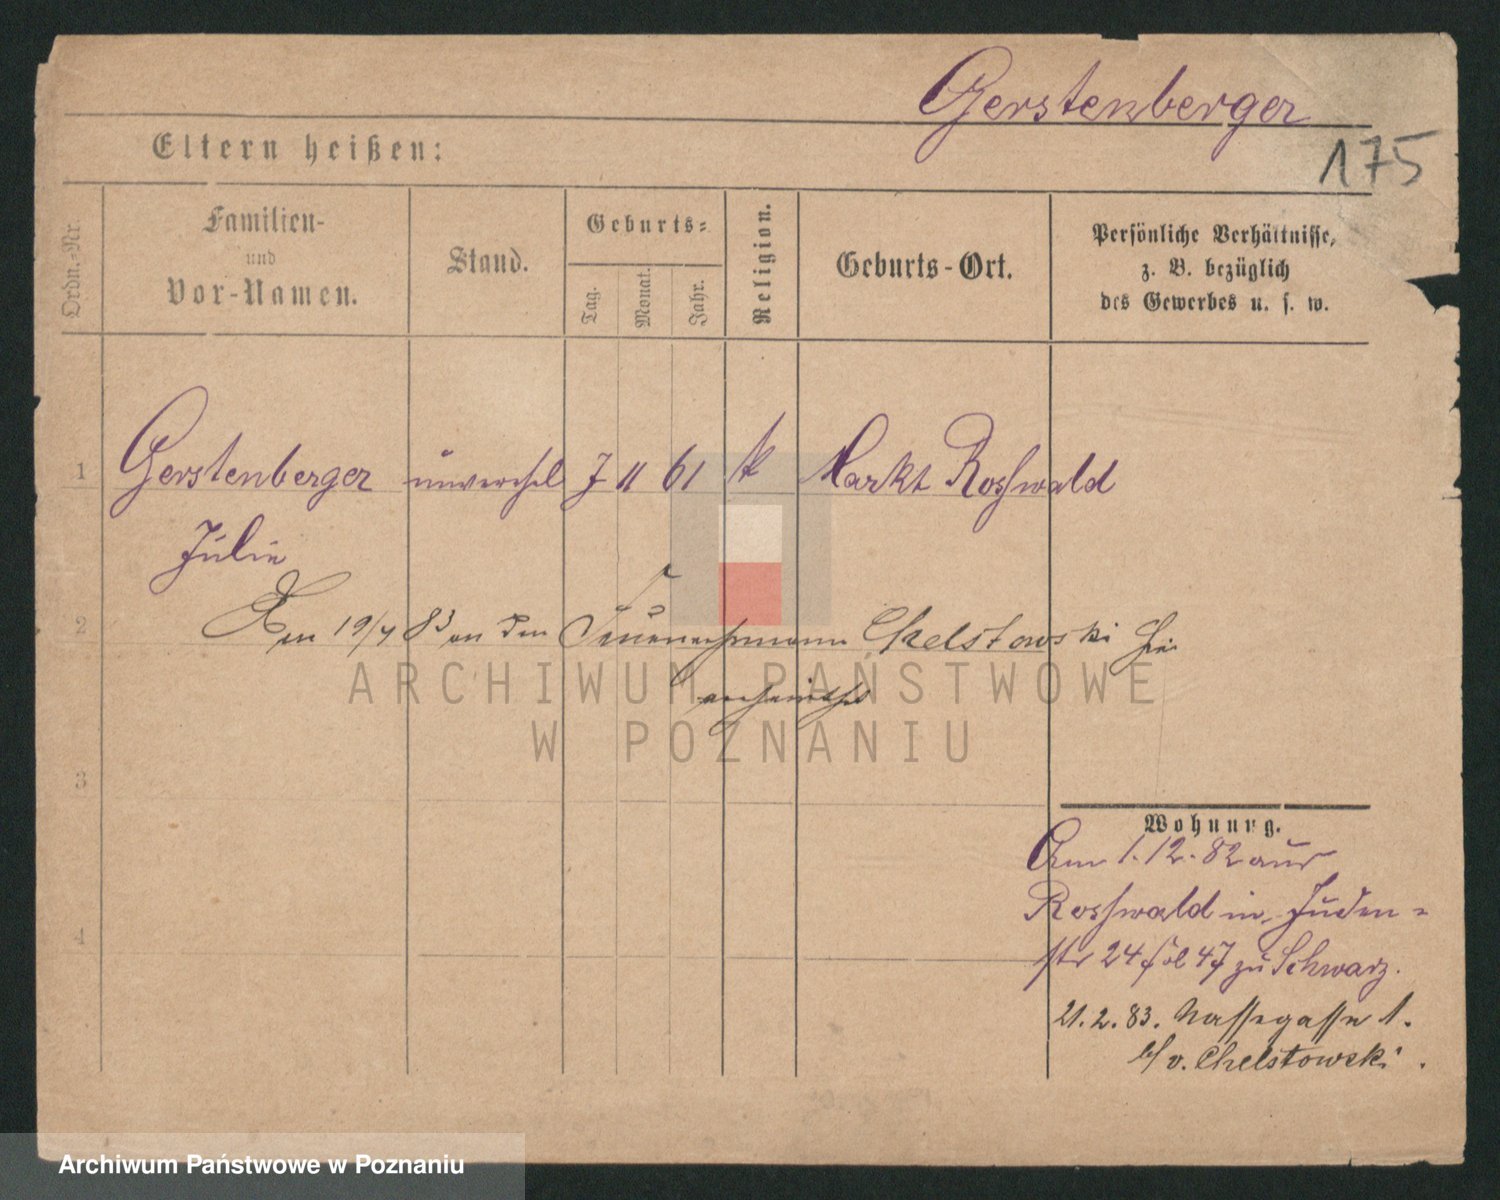 Gerstenberger
175
Eltern heißen:
Ordn.-Nr.
Familien-
und
Vor-Namen.
Stand.
Geburts-
Tag.
Monat.
Jahr.
Religion.
Geburts-Ort.
Persönliche Verhältnisse,
z. B. bezüglich
des Gewerbes u. s. w.
1 Gerstenberger unverehel 7 11 61 k Markt Rosswald
Julie
2 Am 19/4 83 an den Feuerwehrmann Chelstowski hier
verheirathet
ARCHIWUM PAŃSTWOWE
W POZNANIU
3
Wohnung.
Am 1.12.82 aus
Rosswald in Juden-
str 24 fol 47 zu Schwarz.
4
21.2.83. Nassegasse 1.
b/ v. Chelstowski.
Archiwum Państwowe w Poznaniu